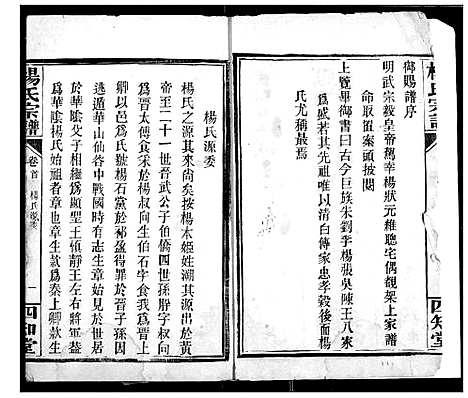 楊氏宗譜
四知堂
御賜譜序
明武宗毅皇帝駕幸楊狀元維聰宅偶覩架上家譜
命取置案頭披閱
上覽畢御書曰古今巨族朱劉李楊張吳陳王八家
當居於最而楊氏世以清白傳家忠孝裕後而楊
氏尤稱最焉
楊氏源委
楊氏之源其來尚矣按楊本姬姓溯其源出於黃
帝至二十一世晉武公子伯僑四世孫胙叔向
為晉太傅食采於楊叔向生伯石字食我以
以邑為氏號楊石黨於祁盈得罪於晉子孫因
逃遁華山仙谷中戰國時有志生章始見於世居
於華陰父子相繼為顯聖王頓靜王左右故
為華陰楊氏始祖者章也生章生款為秦上卿款生
楊氏宗譜
卷首
楊氏源委
一
四知堂